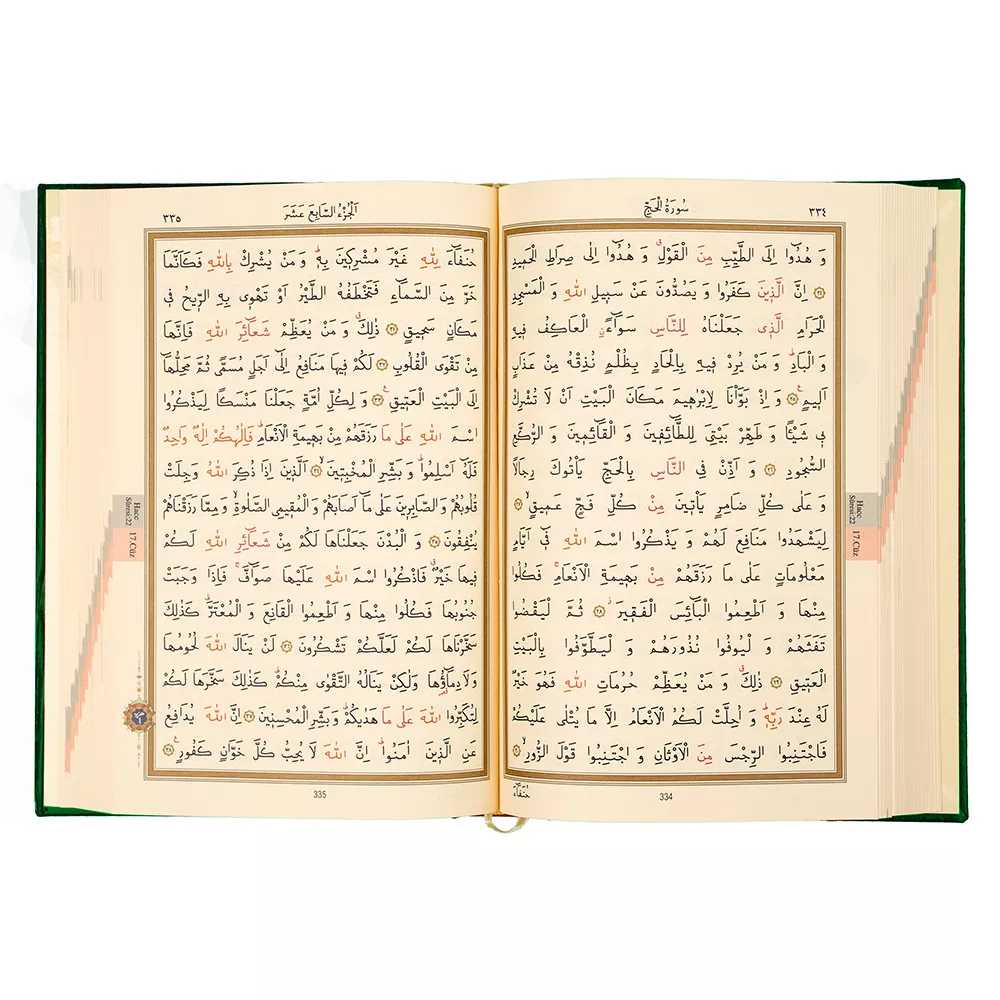 ٣٣٤
سُورَةُ الْحَجِّ
وَ هُدُوا اِلَى الطَّيِّبِ مِنَ الْقَوْلِۚ وَ هُدُوا اِلٰى صِرَاطِ الْحَمِيدِ
﴿٢٤﴾ اِنَّ الَّذِينَ كَفَرُوا وَ يَصُدُّونَ عَنْ سَبِيلِ اللّٰهِ وَ الْمَسْجِدِ
الْحَرَامِ الَّذِى جَعَلْنَاهُ لِلنَّاسِ سَوَاۤءً ۨالْعَاكِفُ فِيهِ
وَ الْبَادِۜ وَ مَنْ يُرِدْ فِيهِ بِاِلْحَادٍ بِظُلْمٍ نُذِقْهُ مِنْ عَذَابٍ
اَلِيمٍ ﴿٢٥﴾ وَ اِذْ بَوَّاْنَا لِاِبْرٰهِيمَ مَكَانَ الْبَيْتِ اَنْ لَا تُشْرِكْ
بِى شَيْئًا وَ طَهِّرْ بَيْتِىَ لِلطَّاۤئِفِينَ وَ الْقَاۤئِمِينَ وَ الرُّكَّعِ
السُّجُودِ ﴿٢٦﴾ وَ اَذِّنْ فِى النَّاسِ بِالْحَجِّ يَاْتُوكَ رِجَالًا
وَ عَلٰى كُلِّ ضَامِرٍ يَاْتِينَ مِنْ كُلِّ فَجٍّ عَمِيقٍۙ ﴿٢٧﴾
لِيَشْهَدُوا مَنَافِعَ لَهُمْ وَ يَذْكُرُوا اسْمَ اللّٰهِ فِۤى اَيَّامٍ
مَعْلُومَاتٍ عَلٰى مَا رَزَقَهُمْ مِنْ بَهِيمَةِ الْاَنْعَامِۚ فَكُلُوا
مِنْهَا وَ اَطْعِمُوا الْبَاۤئِسَ الْفَقِيرَۘ ﴿٢٨﴾ ثُمَّ لْيَقْضُوا
تَفَثَهُمْ وَ لْيُوفُوا نُذُورَهُمْ وَ لْيَطَّوَّفُوا بِالْبَيْتِ
الْعَتِيقِ ﴿٢٩﴾ ذٰلِكَۗ وَ مَنْ يُعَظِّمْ حُرُمَاتِ اللّٰهِ فَهُوَ خَيْرٌ
لَهُ عِنْدَ رَبِّهِۜ وَ اُحِلَّتْ لَكُمُ الْاَنْعَامُ اِلَّا مَا يُتْلٰى عَلَيْكُمْ
فَاجْتَنِبُوا الرِّجْسَ مِنَ الْاَوْثَانِ وَ اجْتَنِبُوا قَوْلَ الزُّورِۙ ﴿٣٠﴾
حُنَفَاۤءَ
334
Hacc
Sûresi:22
17.Cüz
اَلْجُزْءُ السَّابِعَ عَشَرَ
٣٣٥
حُنَفَاۤءَ لِلّٰهِ غَيْرَ مُشْرِكِينَ بِهِۜ وَ مَنْ يُشْرِكْ بِاللّٰهِ فَكَاَنَّمَا
خَرَّ مِنَ السَّمَاۤءِ فَتَخْطَفُهُ الطَّيْرُ اَوْ تَهْوِى بِهِ الرِّيحُ فِى
مَكَانٍ سَحِيقٍ ﴿٣١﴾ ذٰلِكَۗ وَ مَنْ يُعَظِّمْ شَعَاۤئِرَ اللّٰهِ فَاِنَّهَا
مِنْ تَقْوَى الْقُلُوبِ ﴿٣٢﴾ لَكُمْ فِيهَا مَنَافِعُ اِلٰۤى اَجَلٍ مُسَمًّى ثُمَّ مَحِلُّهَاۤ
اِلَى الْبَيْتِ الْعَتِيقِ۟ ﴿٣٣﴾ وَ لِكُلِّ اُمَّةٍ جَعَلْنَا مَنْسَكًا لِيَذْكُرُوا
اسْمَ اللّٰهِ عَلٰى مَا رَزَقَهُمْ مِنْ بَهِيمَةِ الْاَنْعَامِۜ فَاِلٰهُكُمْ اِلٰهٌ وَاحِدٌ
فَلَهُۤ اَسْلِمُواۜ وَ بَشِّرِ الْمُخْبِتِينَۙ ﴿٣٤﴾ اَلَّذِينَ اِذَا ذُكِرَ اللّٰهُ وَجِلَتْ
قُلُوبُهُمْ وَ الصَّابِرِينَ عَلٰى مَاۤ اَصَابَهُمْ وَ الْمُقِيمِى الصَّلٰوةِۙ وَ مِمَّا رَزَقْنَاهُمْ
يُنْفِقُونَ ﴿٣٥﴾ وَ الْبُدْنَ جَعَلْنَاهَا لَكُمْ مِنْ شَعَاۤئِرِ اللّٰهِ لَكُمْ
فِيهَا خَيْرٌۗ فَاذْكُرُوا اسْمَ اللّٰهِ عَلَيْهَا صَوَاۤفَّۚ فَاِذَا وَجَبَتْ
جُنُوبُهَا فَكُلُوا مِنْهَا وَ اَطْعِمُوا الْقَانِعَ وَ الْمُعْتَرَّۜ كَذٰلِكَ
سَخَّرْنَاهَا لَكُمْ لَعَلَّكُمْ تَشْكُرُونَ ﴿٣٦﴾ لَنْ يَنَالَ اللّٰهَ لُحُومُهَا
وَلَا دِمَاۤؤُهَا وَلٰكِنْ يَنَالُهُ التَّقْوٰى مِنْكُمْۜ كَذٰلِكَ سَخَّرَهَا لَكُمْ
لِتُكَبِّرُوا اللّٰهَ عَلٰى مَا هَدٰيكُمْۜ وَ بَشِّرِ الْمُحْسِنِينَ ﴿٣٧﴾ اِنَّ اللّٰهَ يُدَافِعُ
عَنِ الَّذِينَ اٰمَنُواۜ اِنَّ اللّٰهَ لَا يُحِبُّ كُلَّ خَوَّانٍ كَفُورٍ۟ ﴿٣٨﴾
335
Hacc
Sûresi:22
17.Cüz